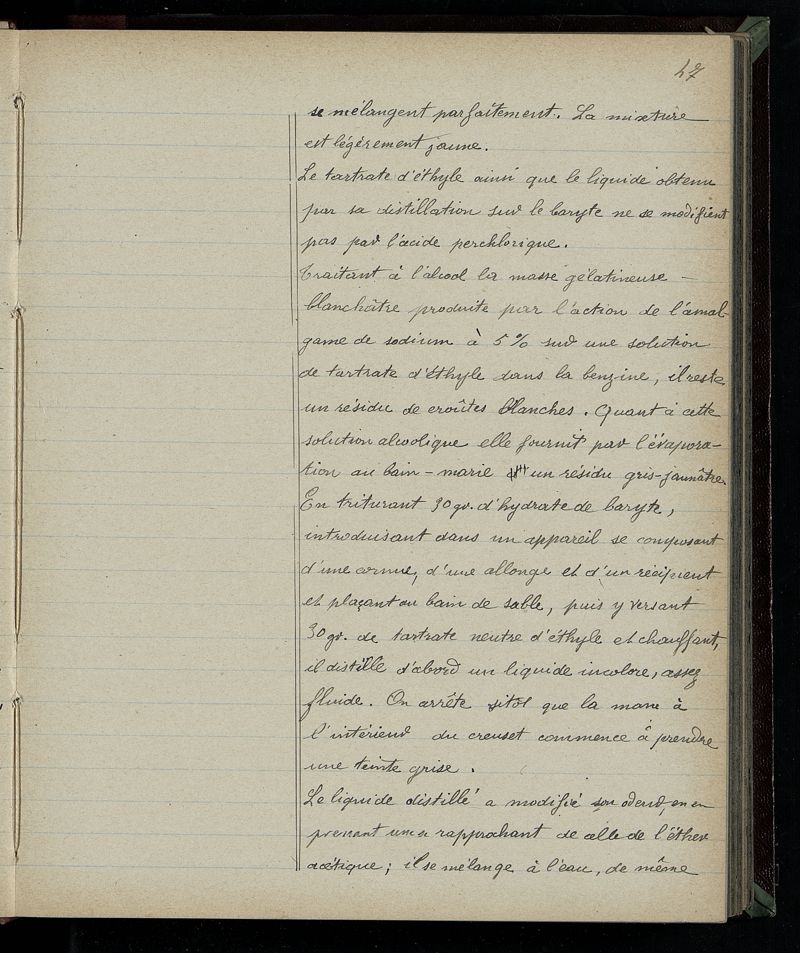 47
se mélangent parfaitement. La mixture
est légèrement jaune.
Le tartrate d'éthyle ainsi que le liquide obtenu
par sa distillation sur le baryte ne se modifient
pas par l'acide perchlorique.
Traitant à l'alcool la masse gélatineuse –
blanchâtre produite par l'action de l'amal-
game de sodium à 5% sur une solution
de tartrate d'éthyle dans la benzine, il reste
un résidu de croûtes blanches. Quant à cette
solution alcoolique elle fournit par l'évapora-
tion au bain-marie un résidu gris-jaunâtre.
En triturant 30 gr. d'hydrate de baryte,
introduisant dans un appareil se composant
d'une cornue, d'une allonge et d'un récipient
et plaçant au bain de sable, puis y versant
30 gr. de tartrate neutre d'éthyle et chauffant,
il distille d'abord un liquide incolore, assez
fluide. On arrête sitôt que la masse à
l'intérieur du creuset commence à prendre
une teinte grise.
Le liquide distillé a modifié son odeur, en en
prenant une rapprochant de celle de l'éther
acétique; il se mélange à l'eau, de même